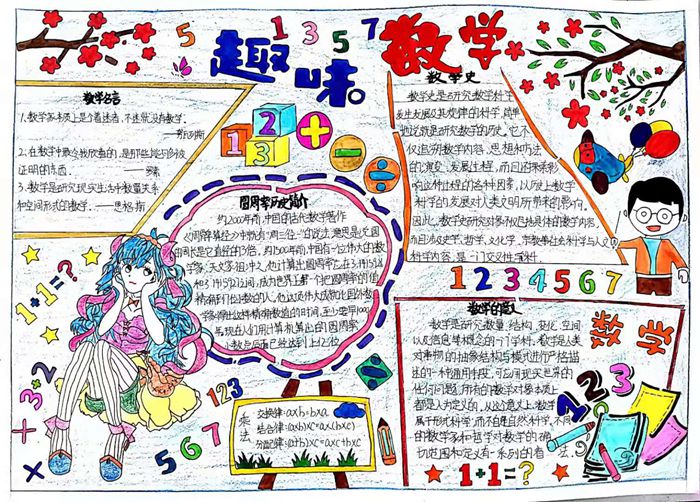 5 1 3 5 7
趣味数学
数学名言
1.数学本质上是个着迷者,不迷就没有数学。
——努瓦列斯
2.在数学中最令我欣喜的,是那些能够被
证明的东西。——罗素
3.数学是研究现实生活中数量关系
和空间形式的数学。——恩格斯
1 2 3
+ ÷
数学史
数学史是研究数学科学
发生发展及其规律的科学,简单
地说就是研究数学的历史。它不
仅追溯数学内容、思想和方法
的演变、发展过程,而且还探索影
响这种过程的各种因素,以及历史上数学
科学的发展对人类文明所带来的影响。
因此,数学史研究对象不仅包括具体的数学内容,
而且涉及史学、哲学、文化学、宗教等社会科学与人文
科学内容,是一门交叉性学科。
1 2 3 4 5 6 7
圆周率历史简介
约2000年前,中国的古代数学著作
《周髀算经》中就有“周三径一”的说法,意思是说圆
的周长是它直径的3倍。约1500年前,中国有一位伟大的数
学家、天文家祖冲之,他计算出圆周率应在3.1415926
和3.1415927之间,成为世界上第一个把圆周率的值
精确到7位小数的人。他这项伟大成就比国外数
学家得出这样精确数值的时间,至少要早1000
年。现在人们用计算机算出的圆周率
小数点后面已经达到上亿位。
1+1=?
+ 3+2
×
123
5 6 7
乘法
交换律:a×b=b×a
结合律:(a×b)×c=a×(b×c)
分配律:(a+b)×c=a×c+b×c
÷
数学的意义
数学是研究数量、结构、变化、空间
以及信息等概念的一门学科。数学是人类
对事物的抽象结构与模式进行严格描
述的一种通用手段,可应用于现实世界的
任何问题,所有的数学对象本质上
都是人为定义的。从这个意义上,数学
属于形式科学,而不是自然科学。不同
的数学家和哲学对数学的确
切范围和定义有一系列的看法。
数学
1 2 3
1+1=?